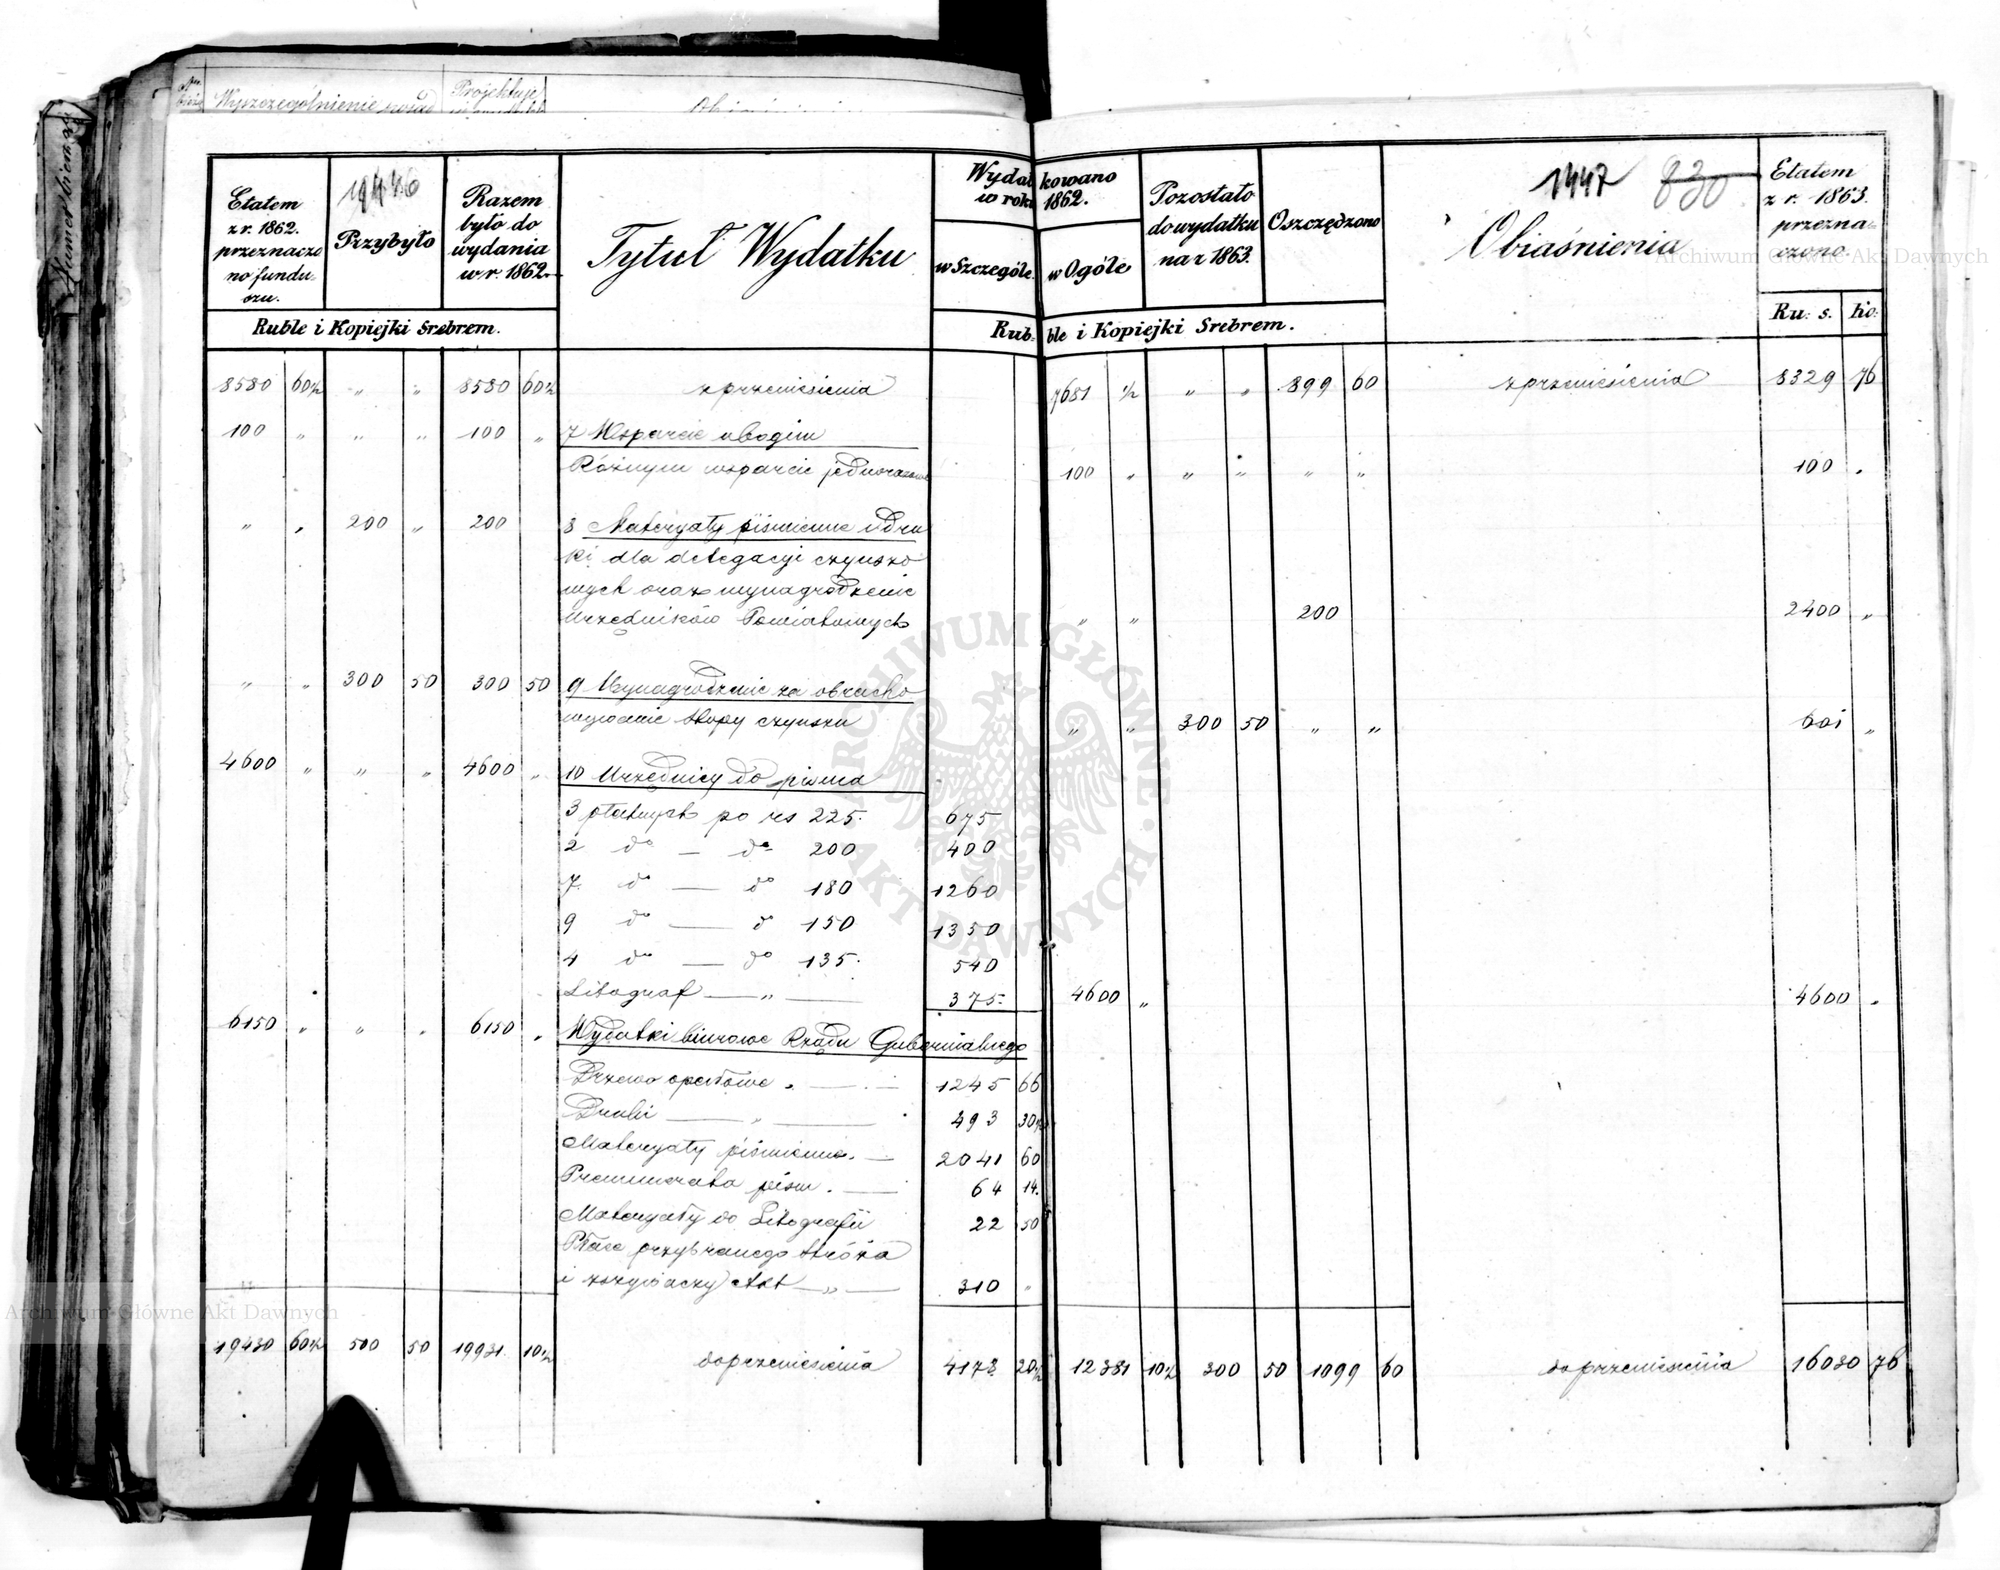 Wyszczególnienie
Projektuje
Numer bieżący
Etatem
z r. 1862.
przeznaczo
no fundu-
szu.
1446
Przybyło
Razem
było do
wydania
w r. 1862.
Tytuł Wydatku
Wydatkowano
w roku 1862.
w Szczególe.
w Ogóle
Pozostało
do wydatku
na r. 1863.
Oszczędzono
1447 830
Obiaśnienia
Etatem
z r. 1863.
przezna-
czono.
Ruble i Kopiejki Srebrem.
Ruble i Kopiejki Srebrem.
Ru: s. Ko:
8580 60½ „ „ 8580 60½ z przeniesienia 7681 ½ „ „ 899 60 z przeniesienia 8329 76
100 „ „ „ 100 „ 7 Wsparcie ubogim
Różnym wsparcie jednorazowe 100 „ „ „ „ „ 100 „
„ „ 200 „ 200 8 Materyały piśmienne i dru
ki dla delegacyi czynszo
wych oraz wynagrodzenie
Urzędników Powiatowych „ „ 200 2400 „
„ „ 300 50 300 50 9 Wynagrodzenie za obracho
wywanie stopy czynszu „ „ 300 50 „ „ 601 „
4600 „ „ „ 4600 „ 10 Urzędnicy do pisma
3 płatnych po rs 225. 675
2 do — do 200 400
7. do — do 180 1260
9 do — do 150 1350
4 do — do 135. 540
Litograf — „ — 375. 4600 „ 4600 „
6150 „ „ „ 6150 „ Wydatki biurowe Rządu Gubernialnego
Drzewo opałowe „ — 1245 66
Druki — „ — 493 30½
Materyały piśmienne. — 2041 60
Prenumerata pism. — 64 14.
Materyały do Litografii 22 50
Płace przybranego stróża
i zszywaczy Akt — „ — 310 „
19430 60½ 500 50 19931. 10½ do przeniesienia 4173 20½ 12381 10½ 300 50 1099 60 do przeniesienia 16030 76
ARCHIWUM GŁÓWNE AKT DAWNYCH
Archiwum Główne Akt Dawnych
Archiwum Główne Akt Dawnych